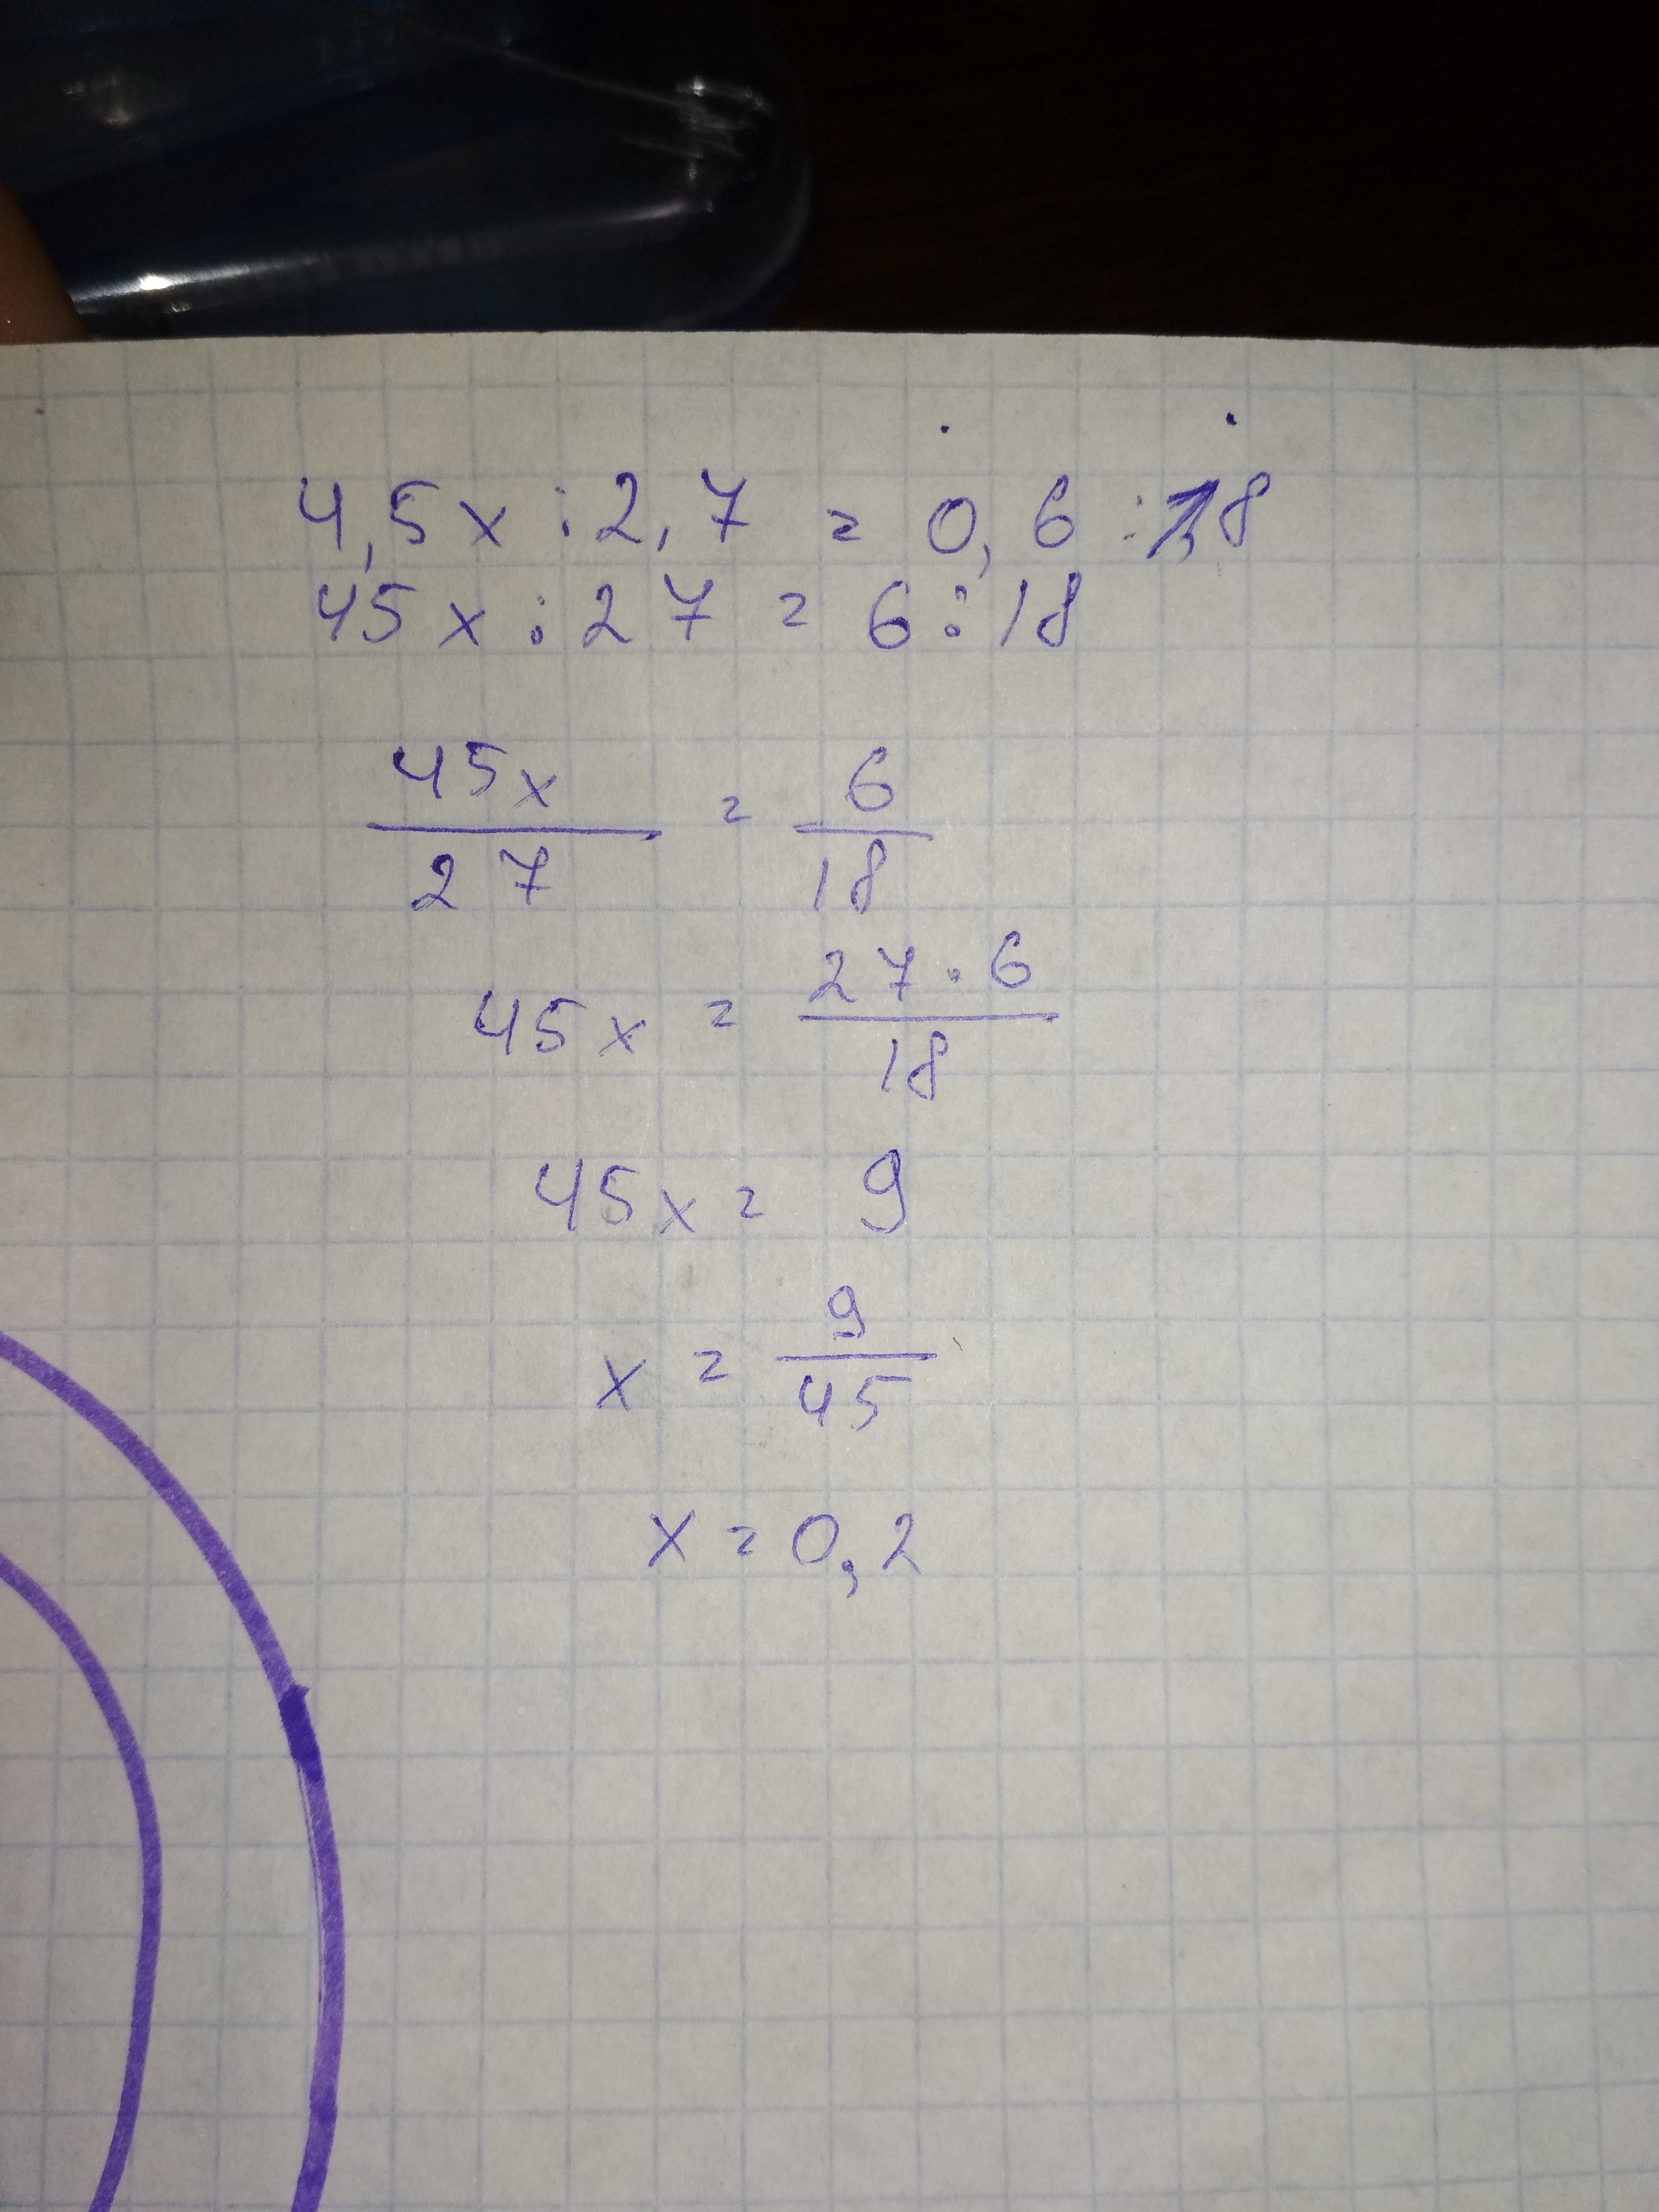 4,5x : 2,7 = 0,6 : 1,8
45x : 27 = 6 : 18
45x / 27 = 6 / 18
45x = 27 · 6 / 18
45x = 9
x = 9 / 45
x = 0,2